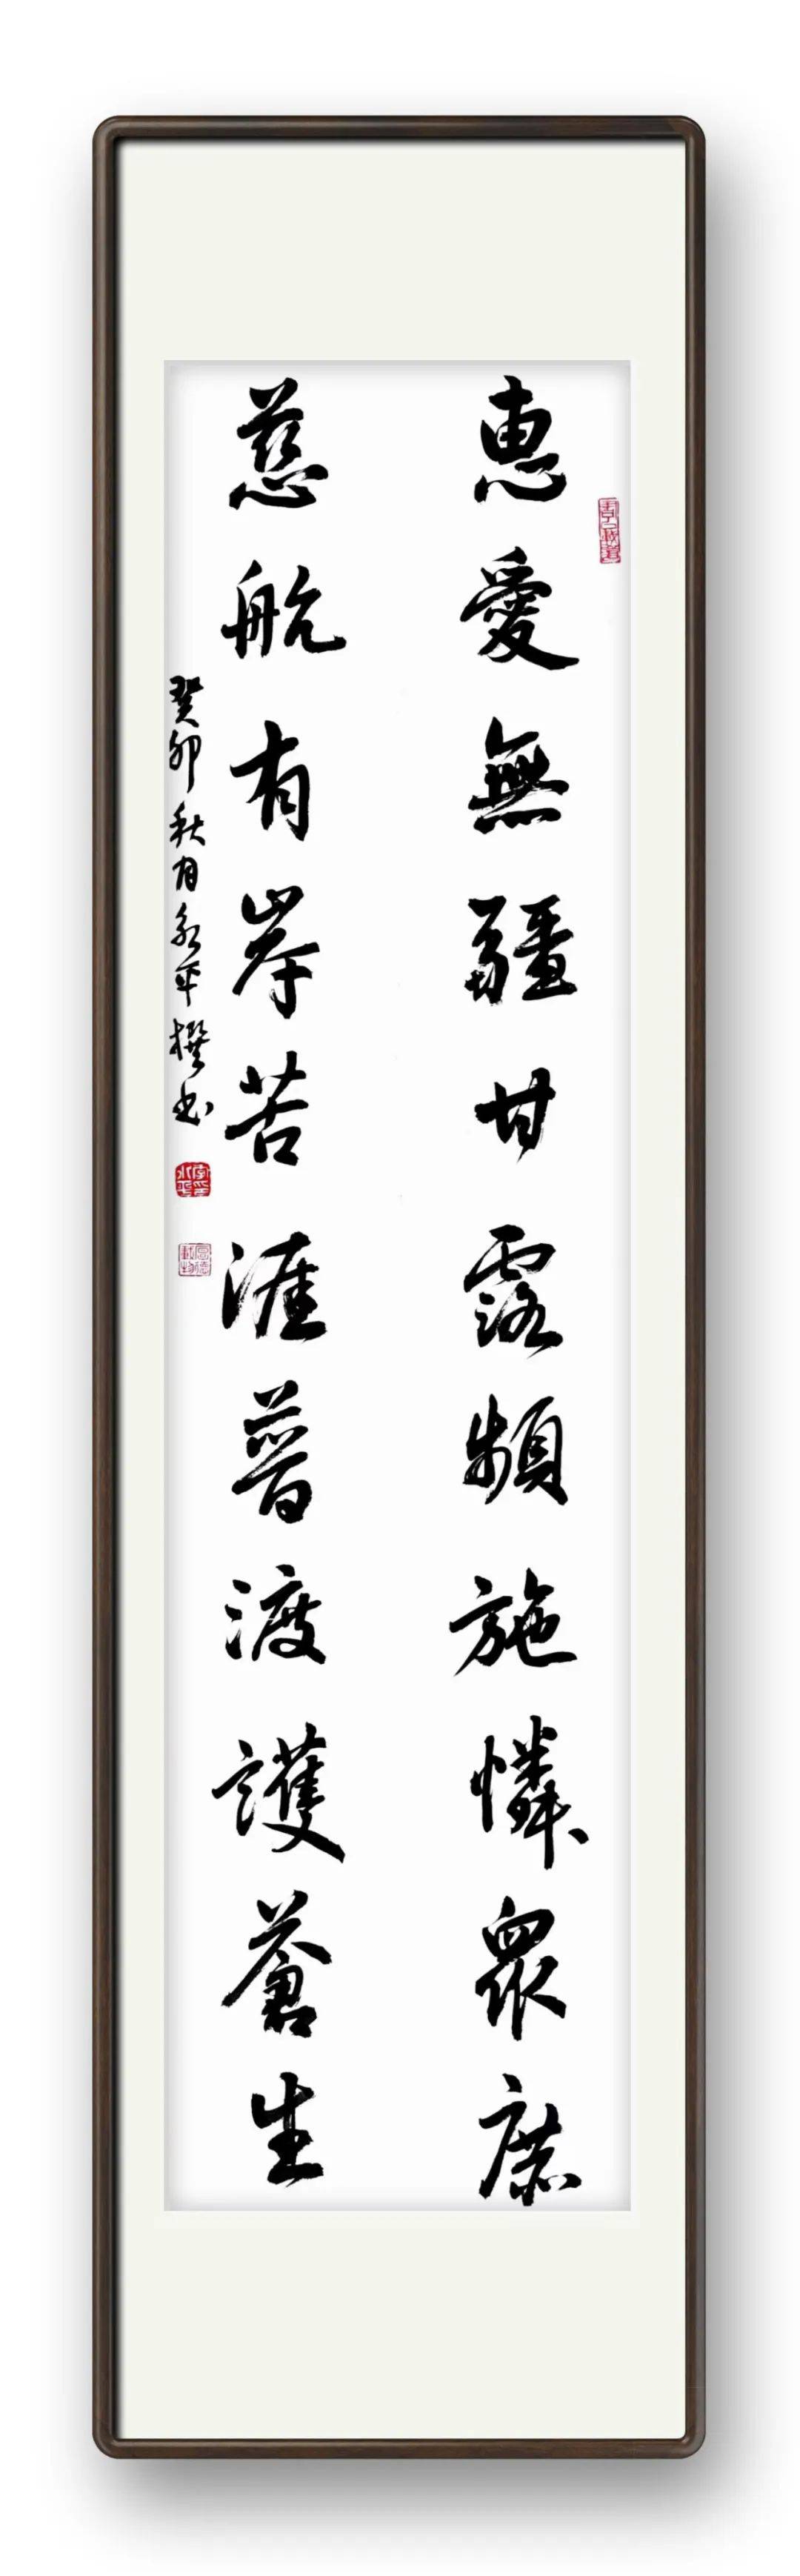 惠愛無疆甘露頻施憐眾庶
慈航有岸苦涯普渡護蒼生
癸卯秋月永平撰书